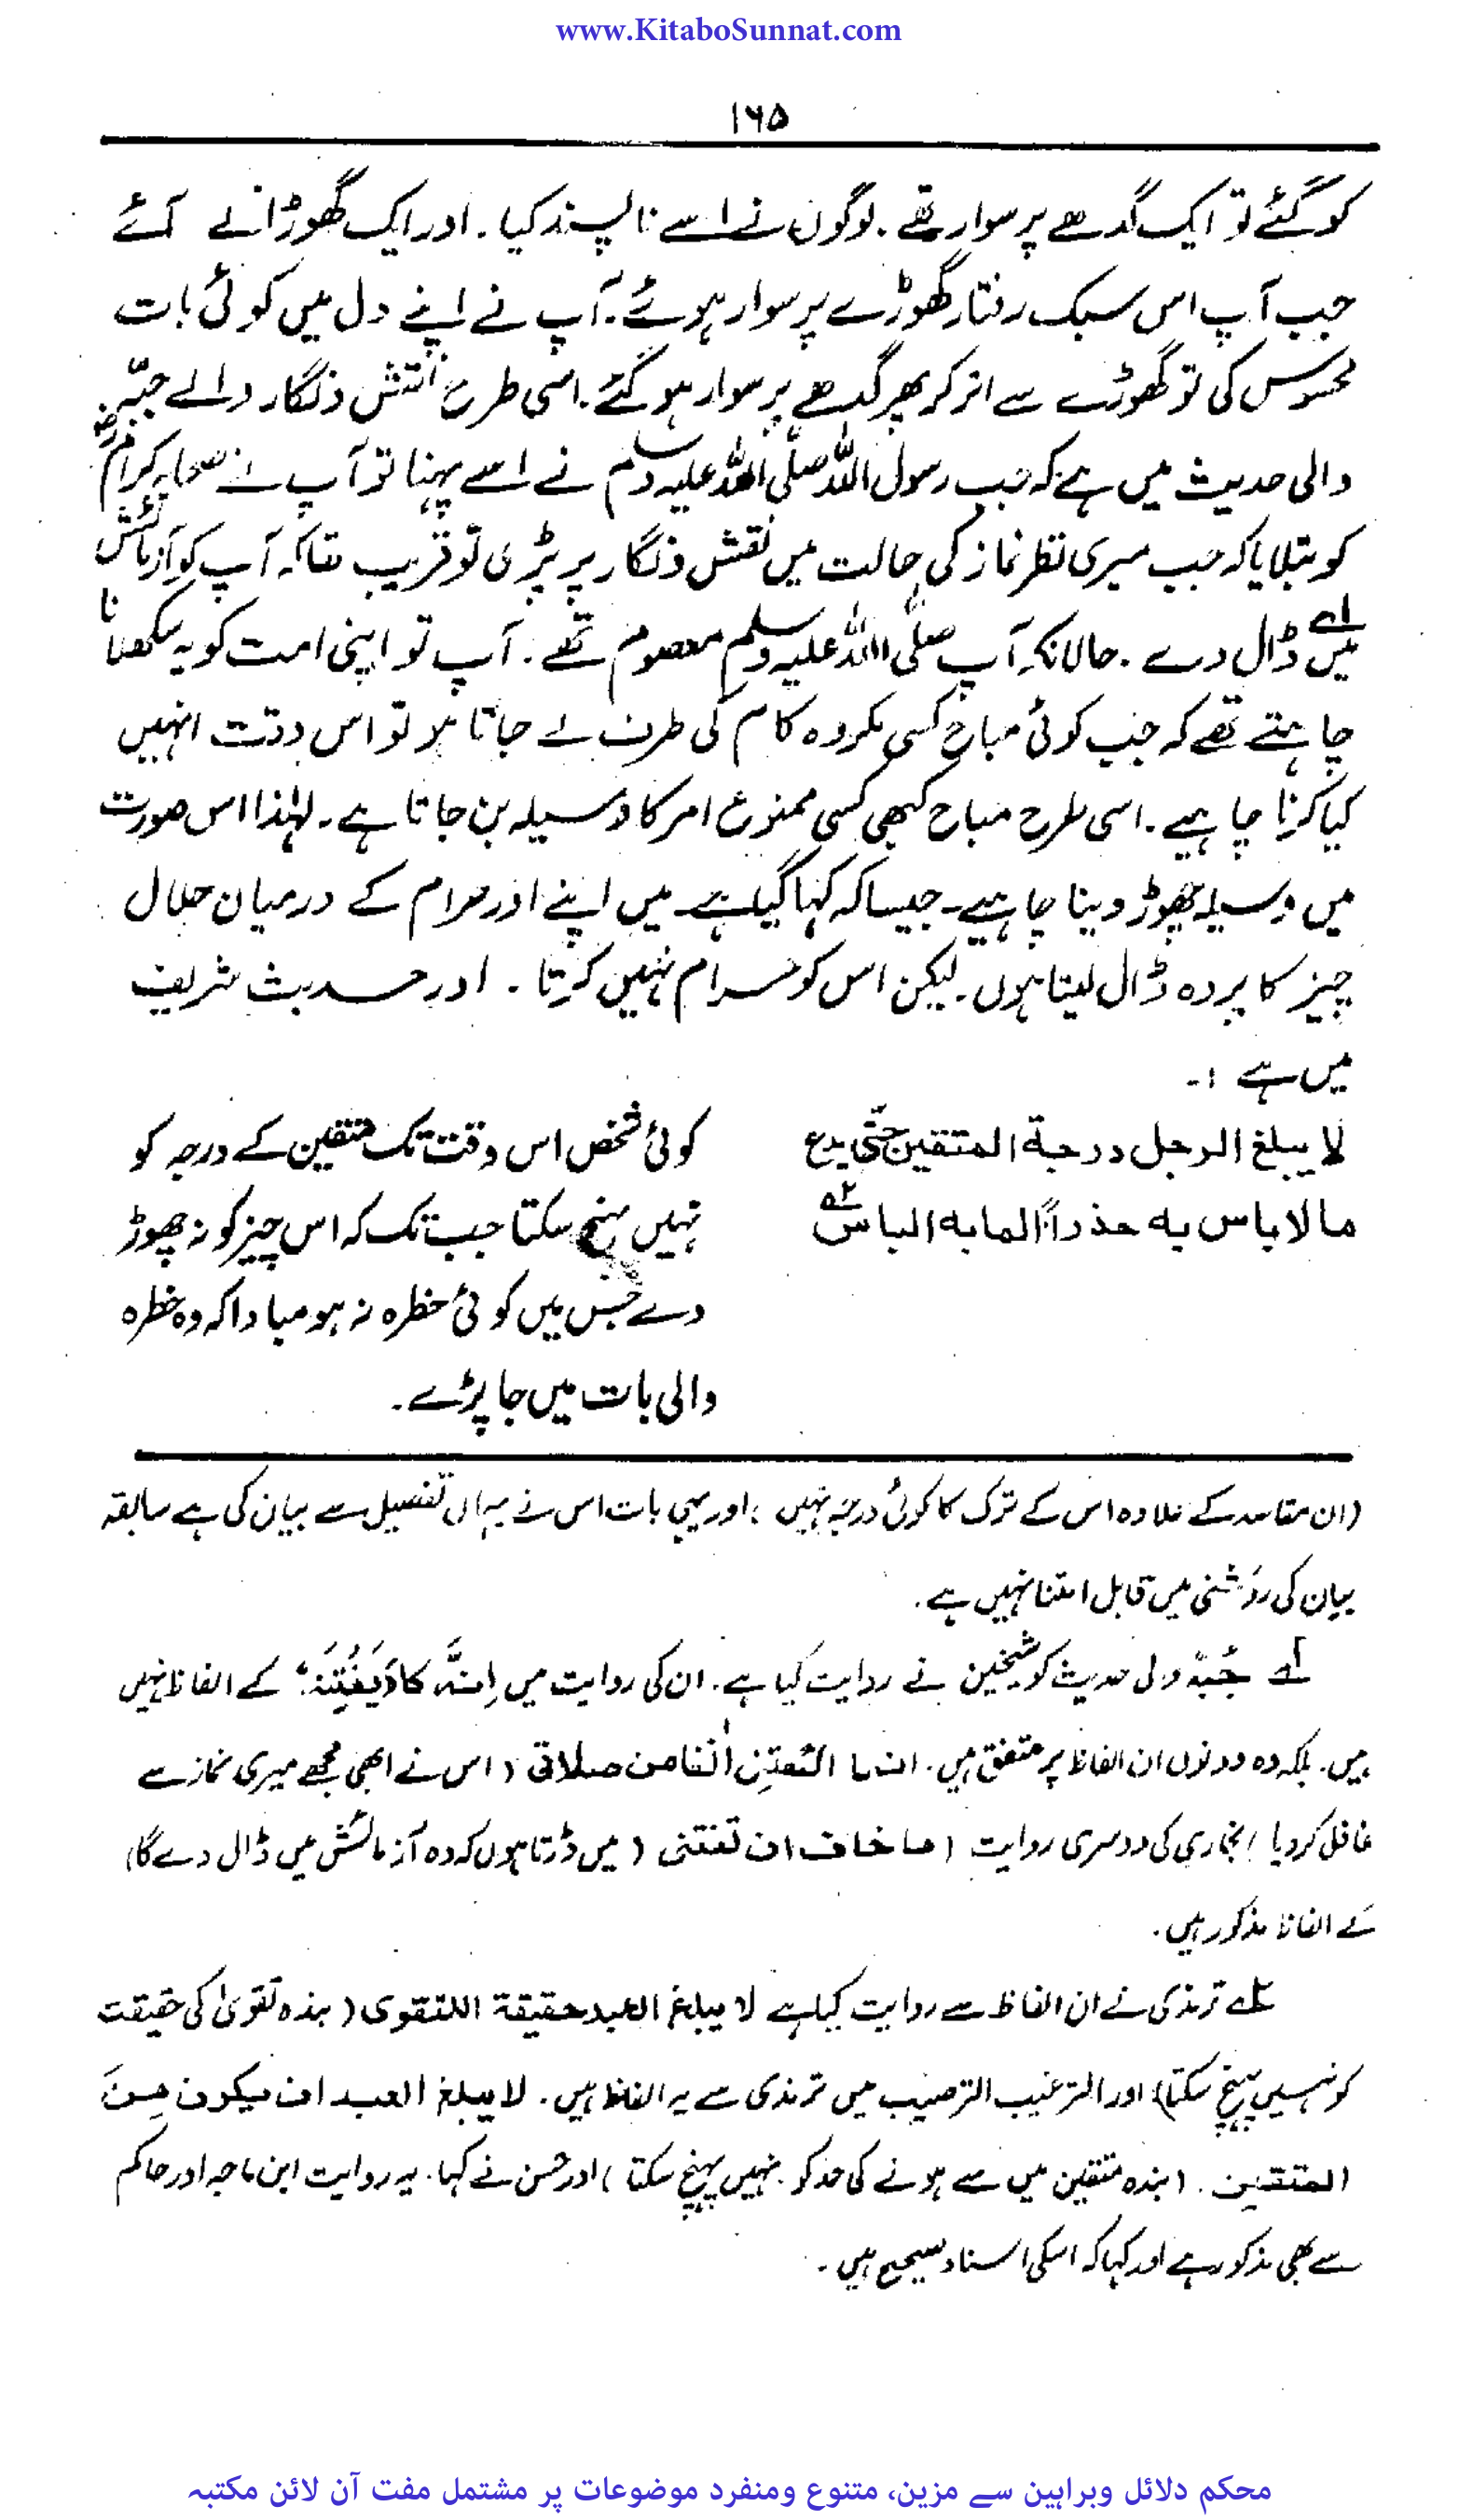 www.KitaboSunnat.com
۱۶۵
کو گئے تو ایک گدھے پر سوار تھے۔ لوگوں نے اسے ناپسند کیا۔ اور ایک گھوڑا لے آئے
جب آپ اس سبک رفتار گھوڑے پر سوار ہوئے۔ آپ نے اپنے دل میں کوئی بات
محسوس کی تو گھوڑے سے اتر کر پھر گدھے پر سوار ہو گئے۔ اسی طرح نقش ونگار والے جبّہ
والی حدیث میں ہے کہ جب رسول اللہ صلّی اللہ علیہ وسلم نے اسے پہنا تو آپ نے صحابہ کرامؓ
کو بتلایا کہ جب میری نظر نماز کی حالت میں نقش ونگار پر پڑی تو قریب تھا کہ آپ کو آزمائش
میں ڈال دے۔ ۱ے حالانکہ آپ صلّی اللہ علیہ وسلم معصوم تھے۔ آپ تو اپنی امت کو یہ سکھلانا
چاہتے تھے کہ جب کوئی مباح کسی مکروہ کام کی طرف لے جاتا ہو تو اس وقت انہیں
کیا کرنا چاہیے۔ اسی طرح مباح کبھی کسی ممنوع امر کا وسیلہ بن جاتا ہے۔ لہٰذا اس صورت
میں وسیلہ چھوڑ دینا چاہیے۔ جیسا کہ کہا گیا ہے۔ میں اپنے اور حرام کے درمیان حلال
چیز کا پردہ ڈال لیتا ہوں۔ لیکن اس کو حرام نہیں کرتا۔ اور حدیث شریف
میں ہے :۔
لا یبلغ الرجل درجة المتقین حتّی یدع
مالا باس به حذراً لما به الباس ۲ے
کوئی شخص اس وقت تک متقین کے درجہ کو
نہیں پہنچ سکتا جب تک کہ اس چیز کو نہ چھوڑ
دے جس میں کوئی خطرہ نہ ہو مبادا کہ وہ خطرہ
والی بات میں جا پڑے۔
(ان مقاصد کے علاوہ اس کے ترک کا کوئی درجہ نہیں؛ اور یہی بات اس نے یہاں تفصیل سے بیان کی ہے سابقہ
بیان کی روشنی میں قابل اعتنا نہیں ہے۔
۱ے جُبّہ ولی حدیث کو شیخین نے روایت کیا ہے۔ ان کی روایت میں اِنَّہ کادَ یَفْتِنَہُ کے الفاظ نہیں
ہیں۔ بلکہ وہ دونوں ان الفاظ پر متفق ہیں۔ انها الهتنی اٰنفا من صلاتی (اس نے ابھی مجھے میری نماز سے
غافل کر دیا) بخاری کی دوسری روایت (فاخاف ان تفتنی (میں ڈرتا ہوں کہ وہ آزمائش میں ڈال دے گا)
کے الفاظ مذکور ہیں۔
۲ے ترمذی نے ان الفاظ سے روایت کیا ہے لا یبلغ العبد حقیقة التقوی (بندہ تقویٰ کی حقیقت
کو نہیں پہنچ سکتا) اور الترغیب الترھیب میں ترمذی سے یہ الفاظ ہیں۔ لا یبلغ العبد ان یکون مِنَ
المتقین۔ (بندہ متقین میں سے ہونے کی حد کو نہیں پہنچ سکتا) اور حسن نے کہا۔ یہ روایت ابن ماجہ اور حاکم
سے بھی مذکور ہے اور کہا کہ اسکی اسناد صحیح ہیں۔
محکم دلائل وبراہین سے مزین، متنوع ومنفرد موضوعات پر مشتمل مفت آن لائن مکتبہ